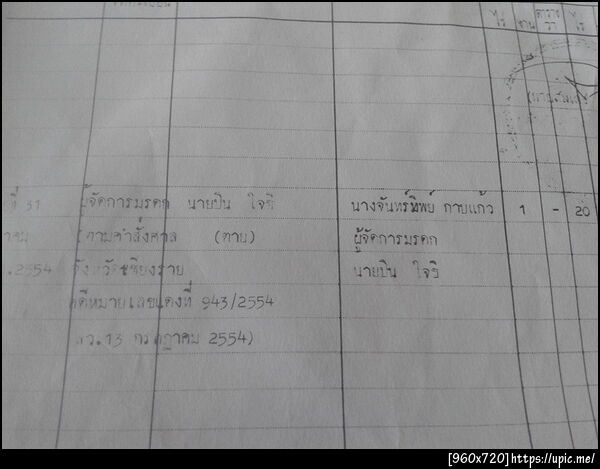 ไร่ งาน ตาราง วา ไร่
ที่ 31 ผู้จัดการมรดก นายปัน ใจชิ นางจันทร์ทิพย์ กาบแก้ว 1 - 20
าคม (ตามคำสั่งศาล (ตาย) ผู้จัดการมรดก
.2554 จังหวัดเชียงราย นายปัน ใจชิ
คดีหมายเลขแดงที่ 943/2554
ลว.13 กรกฎาคม 2554)
[960x720]https://upic.me/